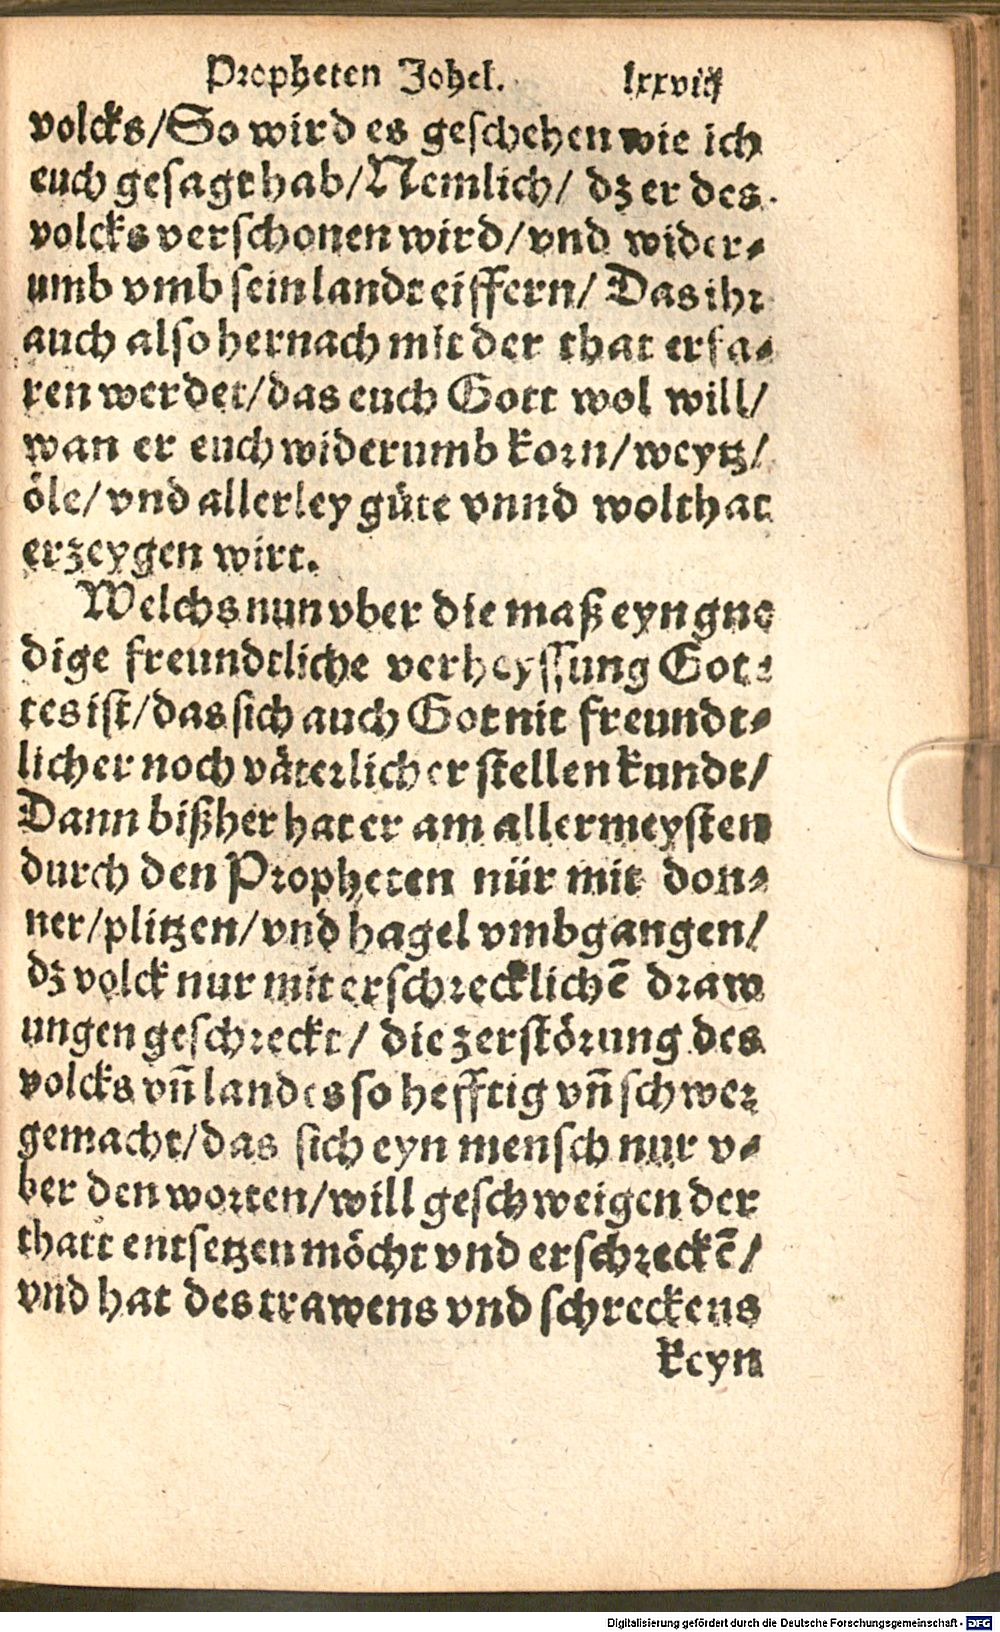 Propheten Johel. lxxviij
volcks/So wird es geschehen wie ich
euch gesagt hab/Nemlich/ dz er des
volcks verschonen wird/vnd wider-
umb vmb sein landt eiffern/ Das ihr
auch also hernach mit der that erfa-
ren werdet/das euch Gott wol will/
wan er euch widerumb korn/weytz/
öle/vnd allerley güte vnnd wolthat
erzeygen wirt.
Welchs nun vber die maß eyn gne
dige freundtliche verheyssung Got-
tes ist/das sich auch Got nit freundt-
licher noch väterlicher stellen kundt/
Dann bißher hat er am allermeysten
durch den Propheten nür mit don-
ner/plitzen/vnd hagel vmbgangen/
dz volck nur mit erschrecklichē draw
ungen geschreckt/ die zerstörung des
volcks vn̄ landes so hefftig vn̄ schwer
gemacht/das sich eyn mensch nur v-
ber den worten/will geschweigen der
thatt entsetzen möcht vnd erschreckē/
vnd hat des trawens vnd schreckens
keyn
Digitalisierung gefördert durch die Deutsche Forschungsgemeinschaft - DFG